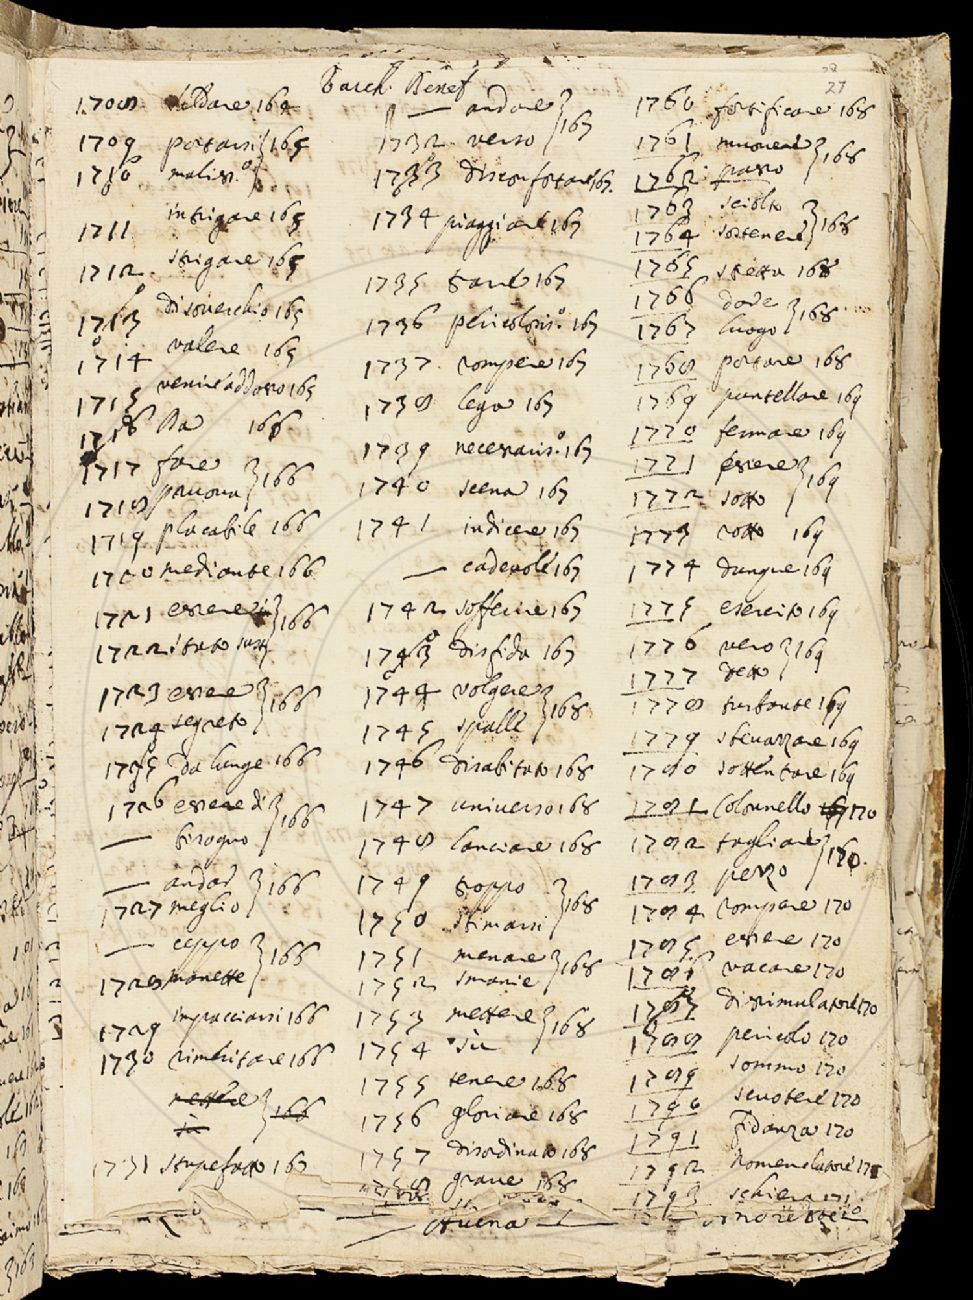 27
1708 162
1709 portarsi 165
1710
1711 intrigare 165
1712 strigare 165
1713 disoverchio 165
1714 valere 165
1715 venire addosso 165
1716 166
1717 fare 166
1718
1719 placabile 166
1720 mediante 166
1721 essere 166
1722
1723 essere 166
1724 segreto
1725 da lunge 166
1726 essere di 166
— bisogno
— andar 166
1727 meglio
— ceppo 166
1728
1729 impacciarsi 166
1730 166
mettere 166
in
1731 stupefatto 167
— andare 167
1732 verso
1733 disconfortare 167
1734 piaggiare 167
1735 167
1736 167
1737 rompere 167
1738 lega 167
1739 167
1740 scena 167
1741 indicere 167
— cadevole 167
1742 167
1743 disfida 167
1744 volgere 168
1745 spalle
1746 disabitato 168
1747 universo 168
1748 lanciare 168
1749 troppo 168
1750 stimarsi
1751 menare 168
1752 smanie
1753 mettere 168
1754 sù
1755 tenere 168
1756 gloriare 168
1757 disordinato 168
1758 grave 168
1760 fortificare 168
1761 muovere 168
1762 passo
1763 sciolto 168
1764 sostenere
1765 stretta 168
1766 dove 168
1767 luogo
1768 portare 168
1769 puntellare 169
1770 fermare 169
1771 essere 169
1772 sotto
1773 rotto 169
1774 dunque 169
1775 esercito 169
1776 vero 169
1777 detto
1778 169
1779 169
1780 sottentrare 169
1781 colonnello 170
1782 tagliare 170
1783 pezzo
1784 rompere 170
1785 essere 170
1786 vacare 170
1787 dissimulatore 170
1788 pericolo 170
1789 sommo 170
1790 scuotere 170
1791 fidanza 170
1792 nomenclatore 171
1793 schiera 171